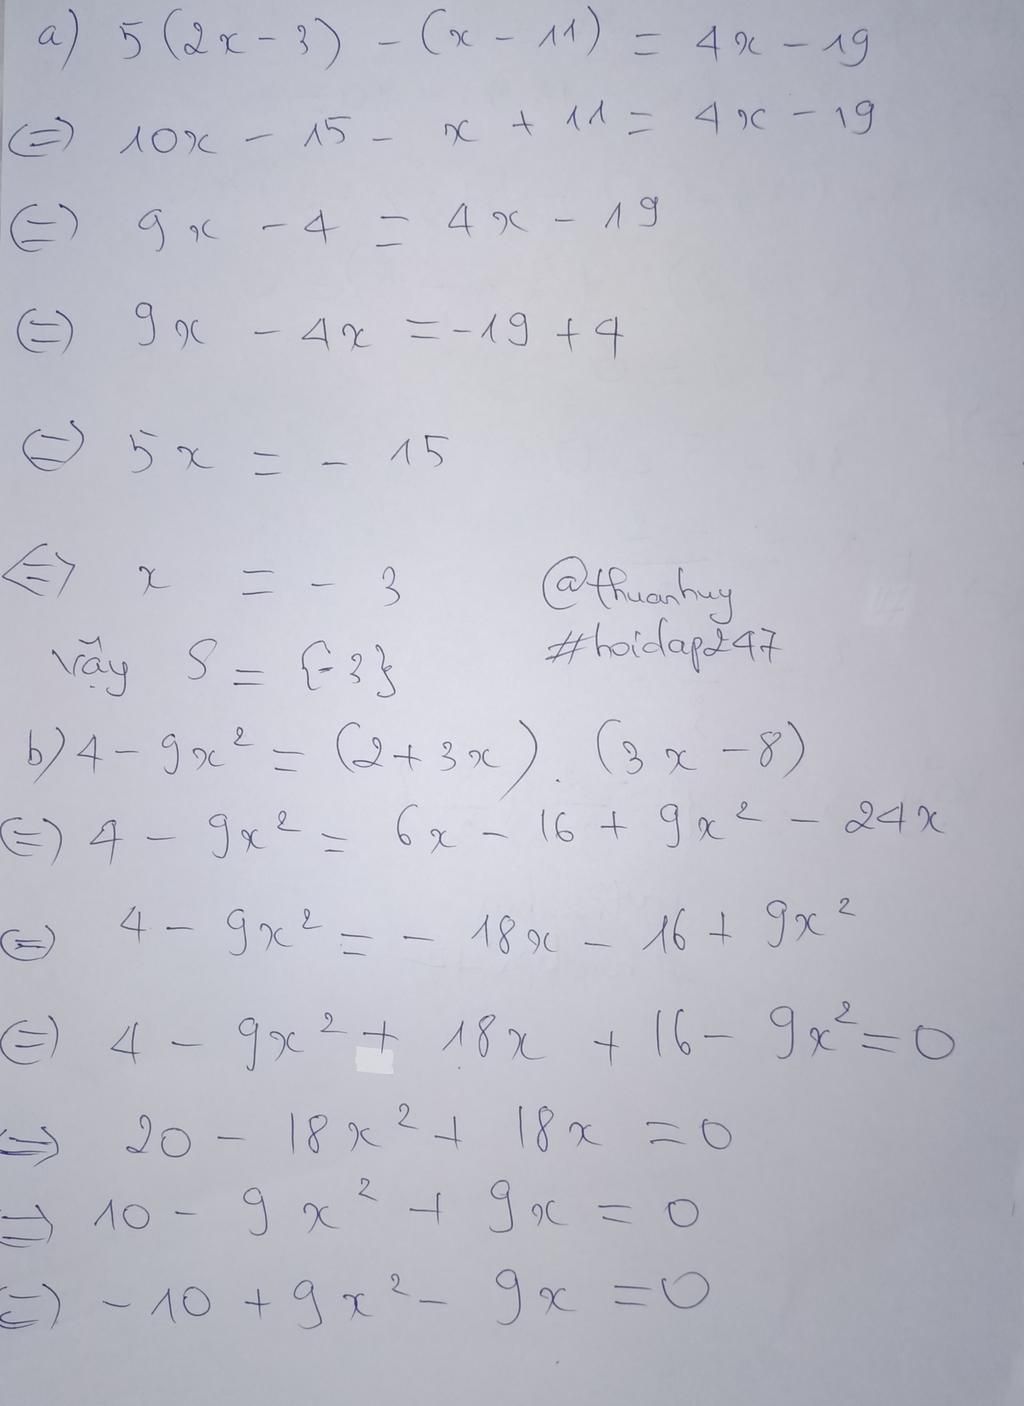 a) 5(2x - 3) - (x - 11) = 4x - 19
(=) 10x - 15 - x + 11 = 4x - 19
(=) 9x - 4 = 4x - 19
(=) 9x - 4x = -19 + 4
(=) 5x = - 15
<=> x = - 3
@thuanhuy
#hoidap247
Vậy S = {-3}
b) 4 - 9x² = (2 + 3x) . (3x - 8)
(=) 4 - 9x² = 6x - 16 + 9x² - 24x
(=) 4 - 9x² = - 18x - 16 + 9x²
(=) 4 - 9x² + 18x + 16 - 9x² = 0
=> 20 - 18x² + 18x = 0
=> 10 - 9x² + 9x = 0
=) -10 + 9x² - 9x = 0